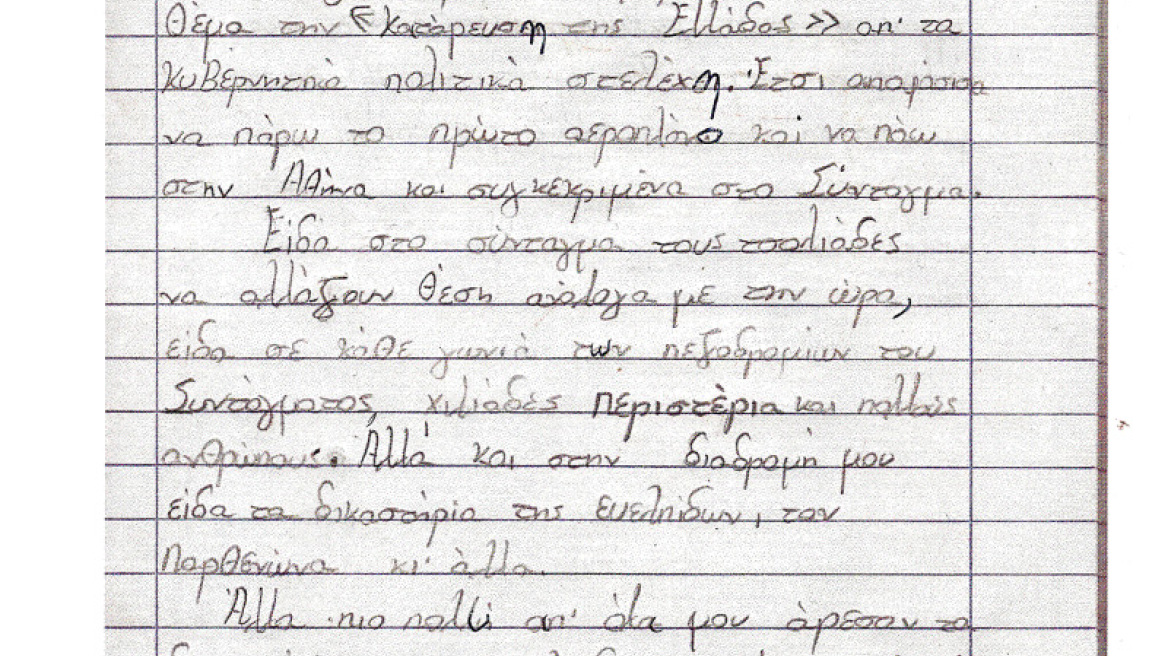 θέμα την «κατάρευση της Ελλάδος» απ' τα
κυβερνητικά πολιτικά στελέχη. Έτσι αποφάσισα
να πάρω το πρώτο αεροπλάνο και να πάω
στην Αθήνα και συγκεκριμένα στο Σύνταγμα.
Είδα στο σύνταγμα τους τσολιάδες
να αλλάζουν θέση ανάλογα με την ώρα,
είδα σε κάθε γωνιά των πεζοδρομίων του
Συντάγματος, χιλιάδες περιστέρια και πολλούς
ανθρώπους. Αλλά και στην διαδρομή μου
είδα τα δικαστήρια της ευελπίδων, τον
Παρθενώνα κι' άλλα.
Αλλά πιο πολύ απ' όλα μου άρεσαν τα